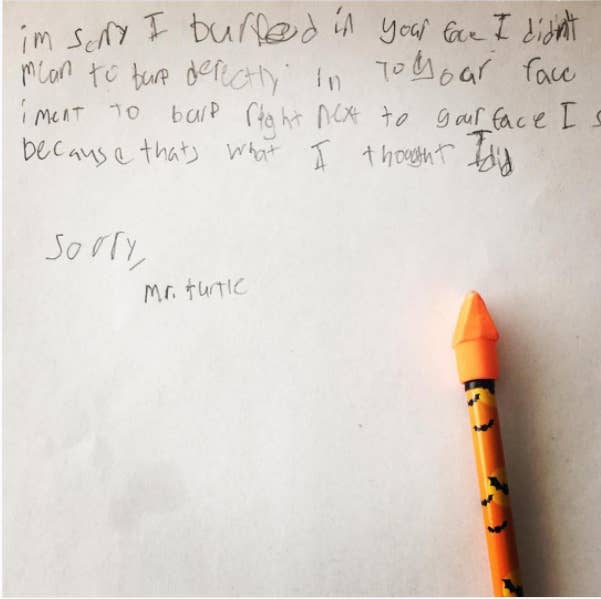 im sorry I burped in your face I didn't
mean to burp derectly in to your face
i ment to burp right next to your face I
because thats what I thought I did
sorry,
Mr. turtle